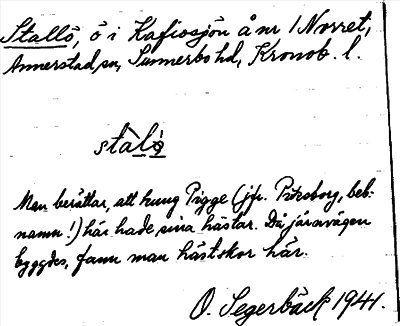 Stallö, ö i Kafiosjön å nr 1 Norret,
Annerstad, sn, Sunnerbo hd, Kronob. l.
stàlö
Man berättar, att kung Pigge (jfr. Pigsborg, beb-
namn!) här hade sina hästar. Då järnvägen
byggdes, fann man hästskor här.
O. Segerbäck 1941.